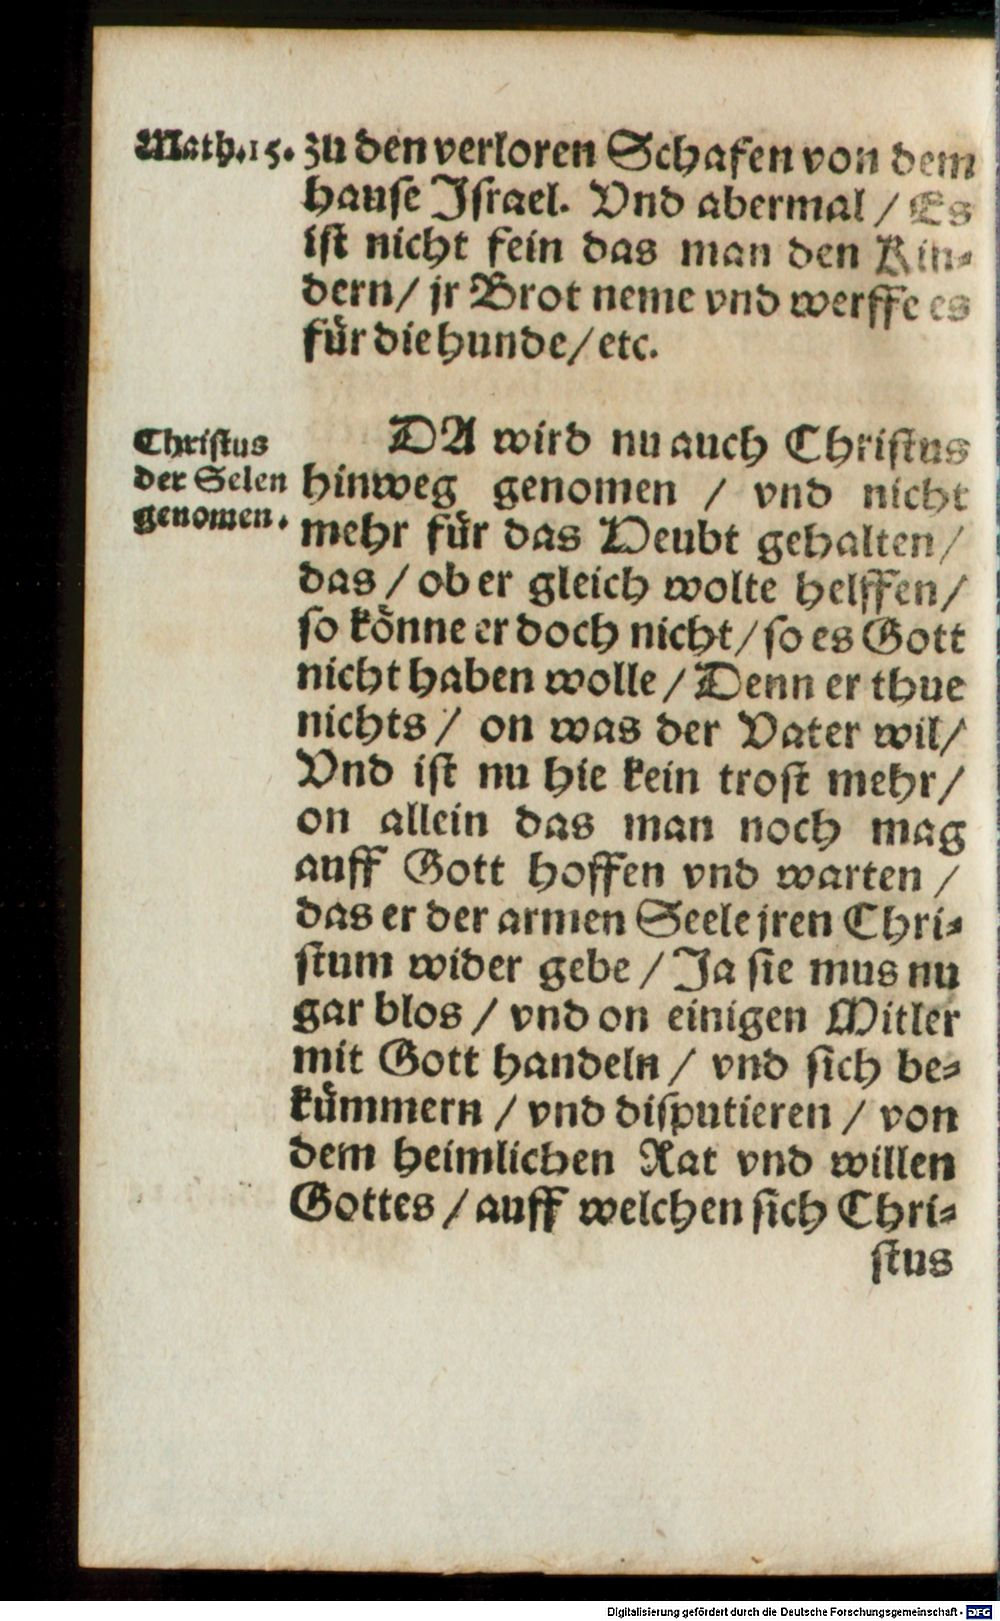 Math.15. zu den verloren Schafen von dem
hauſe Iſrael. Vnd abermal / Es
iſt nicht fein das man den Kin⸗
dern/ jr Brot neme vnd werffe es
für die hunde/ etc.
Chriſtus
der Selen
genomen.
DA wird nu auch Chriſtus
hinweg genomen / vnd nicht
mehr für das Heubt gehalten/
das / ob er gleich wolte helffen/
ſo könne er doch nicht/ ſo es Gott
nicht haben wolle / Denn er thue
nichts / on was der Vater wil/
Vnd iſt nu hie kein troſt mehr/
on allein das man noch mag
auff Gott hoffen vnd warten /
das er der armen Seele jren Chri⸗
ſtum wider gebe / Ja ſie mus nu
gar blos / vnd on einigen Mitler
mit Gott handeln / vnd ſich be⸗
kümmern / vnd diſputieren / von
dem heimlichen Rat vnd willen
Gottes / auff welchen ſich Chri⸗
ſtus
Digitalisierung gefördert durch die Deutsche Forschungsgemeinschaft - DFG